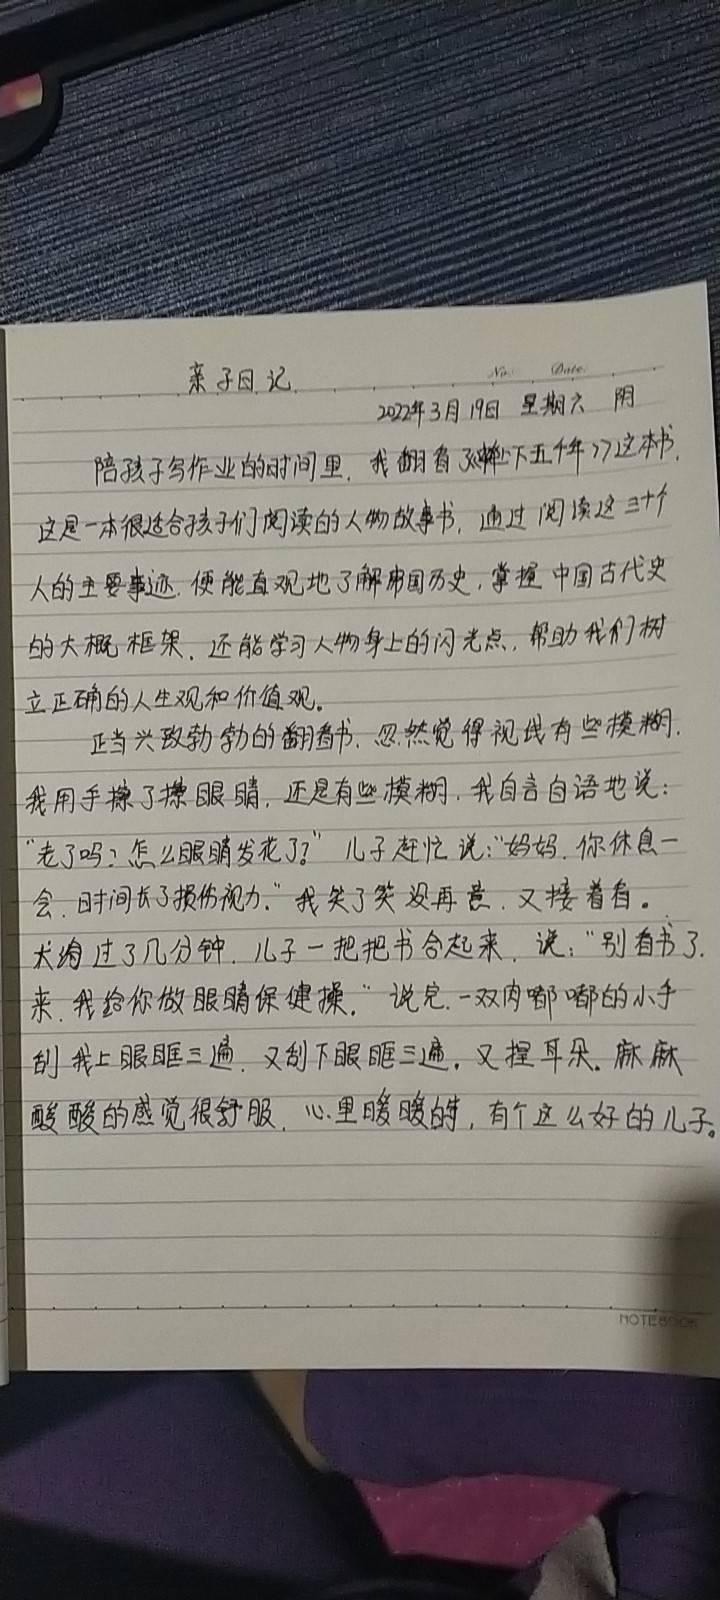 亲子日记
No: Date:
2022年3月19日 星期六 阴
陪孩子写作业的时间里，我翻看了《上下五千年》这本书，
这是一本很适合孩子们阅读的人物故事书，通过阅读这三十个
人的主要事迹，便能直观地了解帝国历史，掌握中国古代史
的大概框架，还能学习人物身上的闪光点，帮助我们树
立正确的人生观和价值观。
正当兴致勃勃的翻看书，忽然觉得视线有些模糊，
我用手揉了揉眼睛，还是有些模糊，我自言自语地说：
“老了吗？怎么眼睛发花了？” 儿子赶忙说：“妈妈，你休息一
会，时间长了损伤视力。”我笑了笑没再意，又接着看。
大约过了几分钟，儿子一把把书合起来，说：“别看书了，
来，我给你做眼睛保健操。”说完，一双肉嘟嘟的小手
刮我上眼眶三遍，又刮下眼眶三遍，又捏耳朵。麻麻
酸酸的感觉很舒服，心里暖暖的，有个这么好的儿子。
NOTEBOOK